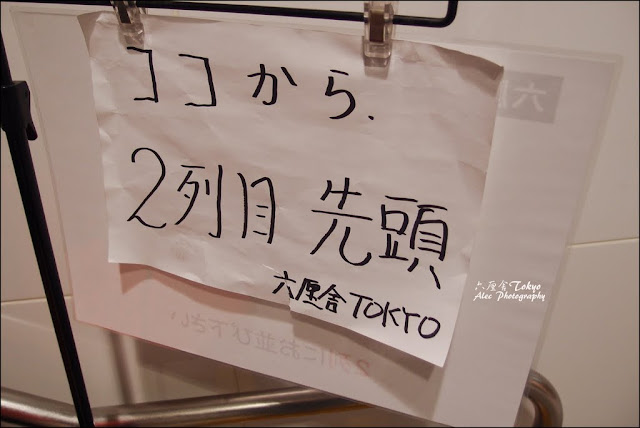 ココから.
2列目 先頭
六厘舎 TOKYO
六
六厘舎Tokyo
Alec Photography
2列にお並び下さい